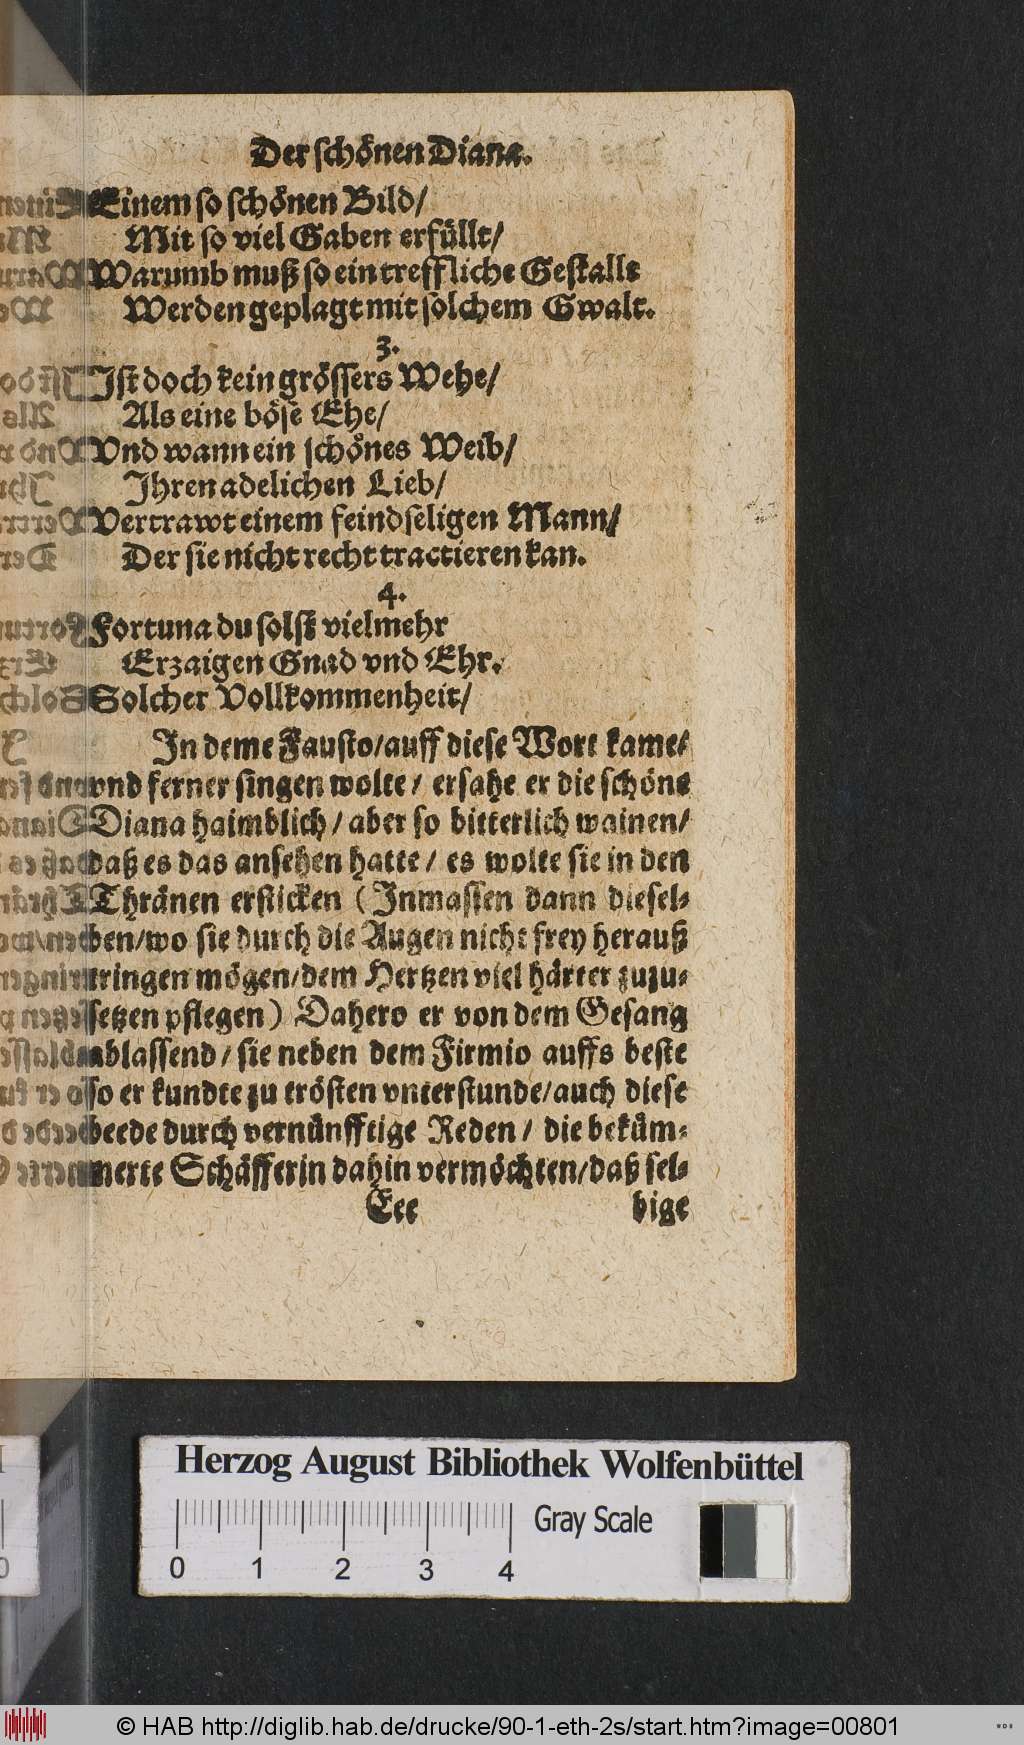 Der schönen Diana.
Einem so schönen Bild/
Mit so viel Gaben erfüllt/
Warumb muß so ein treffliche Gestallt
Werden geplagt mit solchem Gwalt.
3.
Ist doch kein grössers Wehe/
Als eine böse Ehe/
Vnd wann ein schönes Weib/
Ihren adelichen Lieb/
Vertrawt einem feindseligen Mann/
Der sie nicht recht tractieren kan.
4.
Fortuna du solst vielmehr
Erzaigen Gnad vnd Ehr.
Solcher Vollkommenheit/
In deme Fausto/auff diese Wort kame/
vnd ferner singen wolte/ ersahe er die schöne
Diana haimblich/ aber so bitterlich wainen/
daß es das ansehen hatte/ es wolte sie in den
Thränen ersticken (Inmassen dann diesel-
ben/wo sie durch die Augen nicht frey herauß
tringen mögen/dem Hertzen viel härter zuzu-
setzen pflegen) Dahero er von dem Gesang
ablassend/ sie neben dem Firmio auffs beste
so er kundte zu trösten vnterstunde/auch diese
beede durch vernünfftige Reden/ die beküm-
merte Schäfferin dahin vermöchten/daß sel-
Eee bige
Herzog August Bibliothek Wolfenbüttel
Gray Scale
0 1 2 3 4
© HAB http://diglib.hab.de/drucke/90-1-eth-2s/start.htm?image=00801